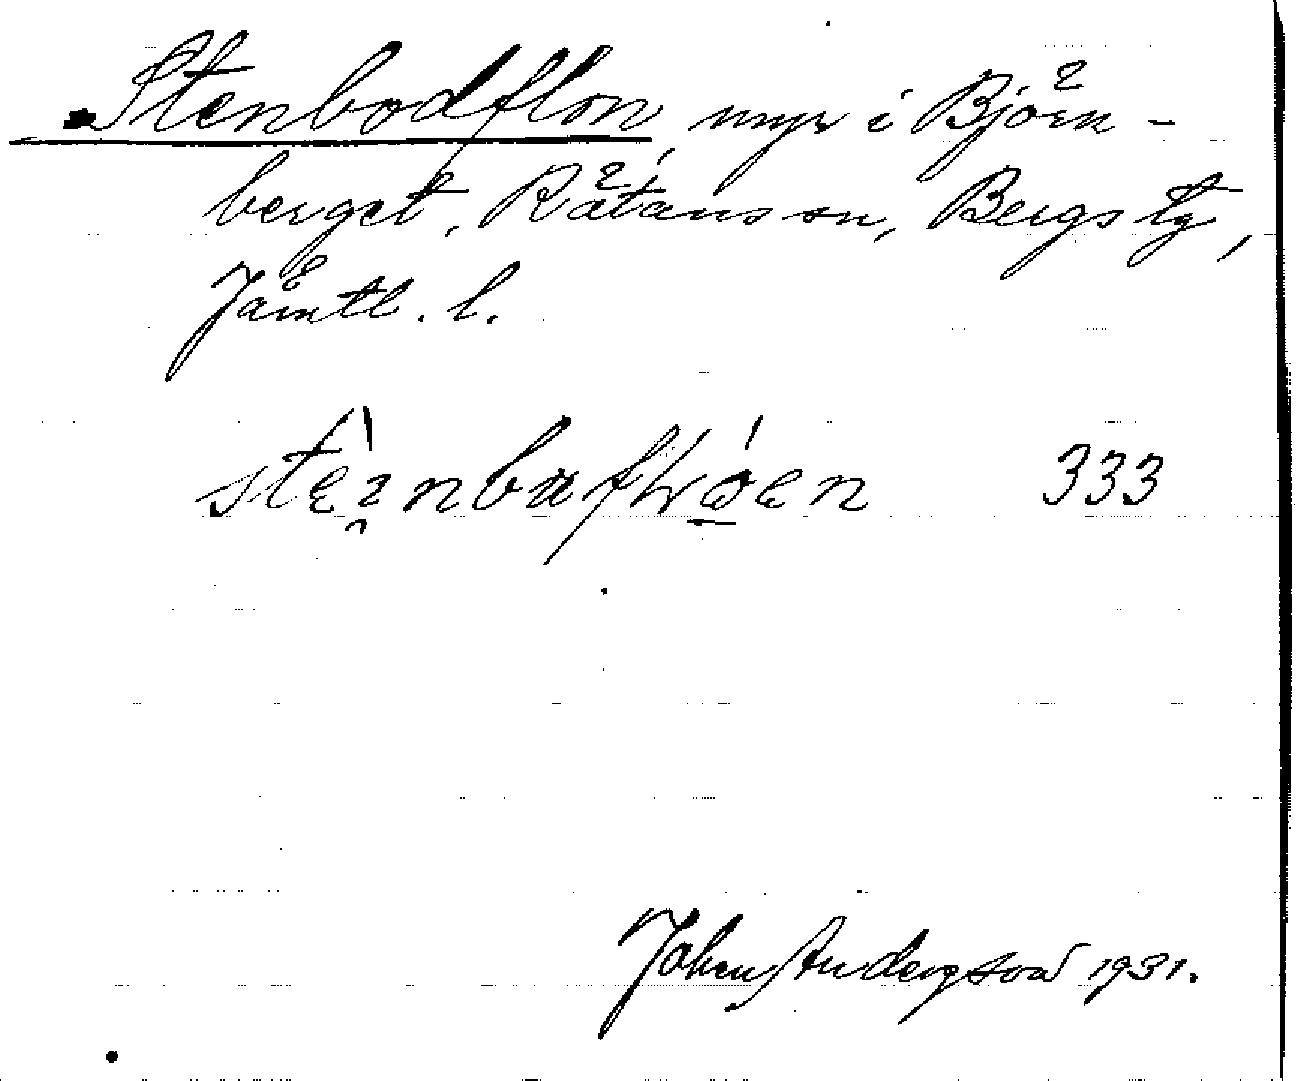 Stenbodflon, myr i Björn-
berget, Rätans sn, Bergs tg,
Jämtl. l.
333
Johan Andersson 1931.